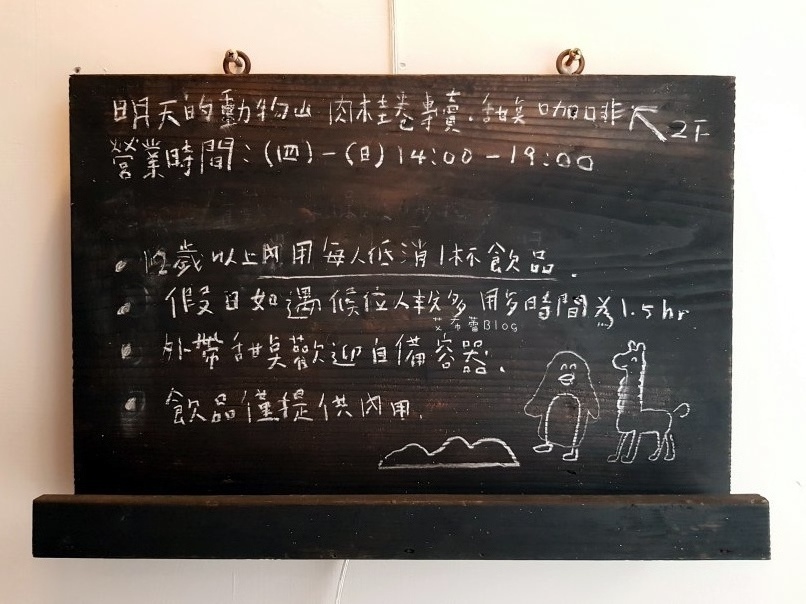 明天的動物山 肉桂卷專賣.甜點 咖啡 ↖ 2F
營業時間:(四)-(日) 14:00-19:00
• 12歲以上內用每人低消1杯飲品.
• 假日如遇候位人較多 用餐時間為1.5hr
艾希蕾Blog
• 外帶甜點歡迎自備容器.
• 飲品僅提供內用.